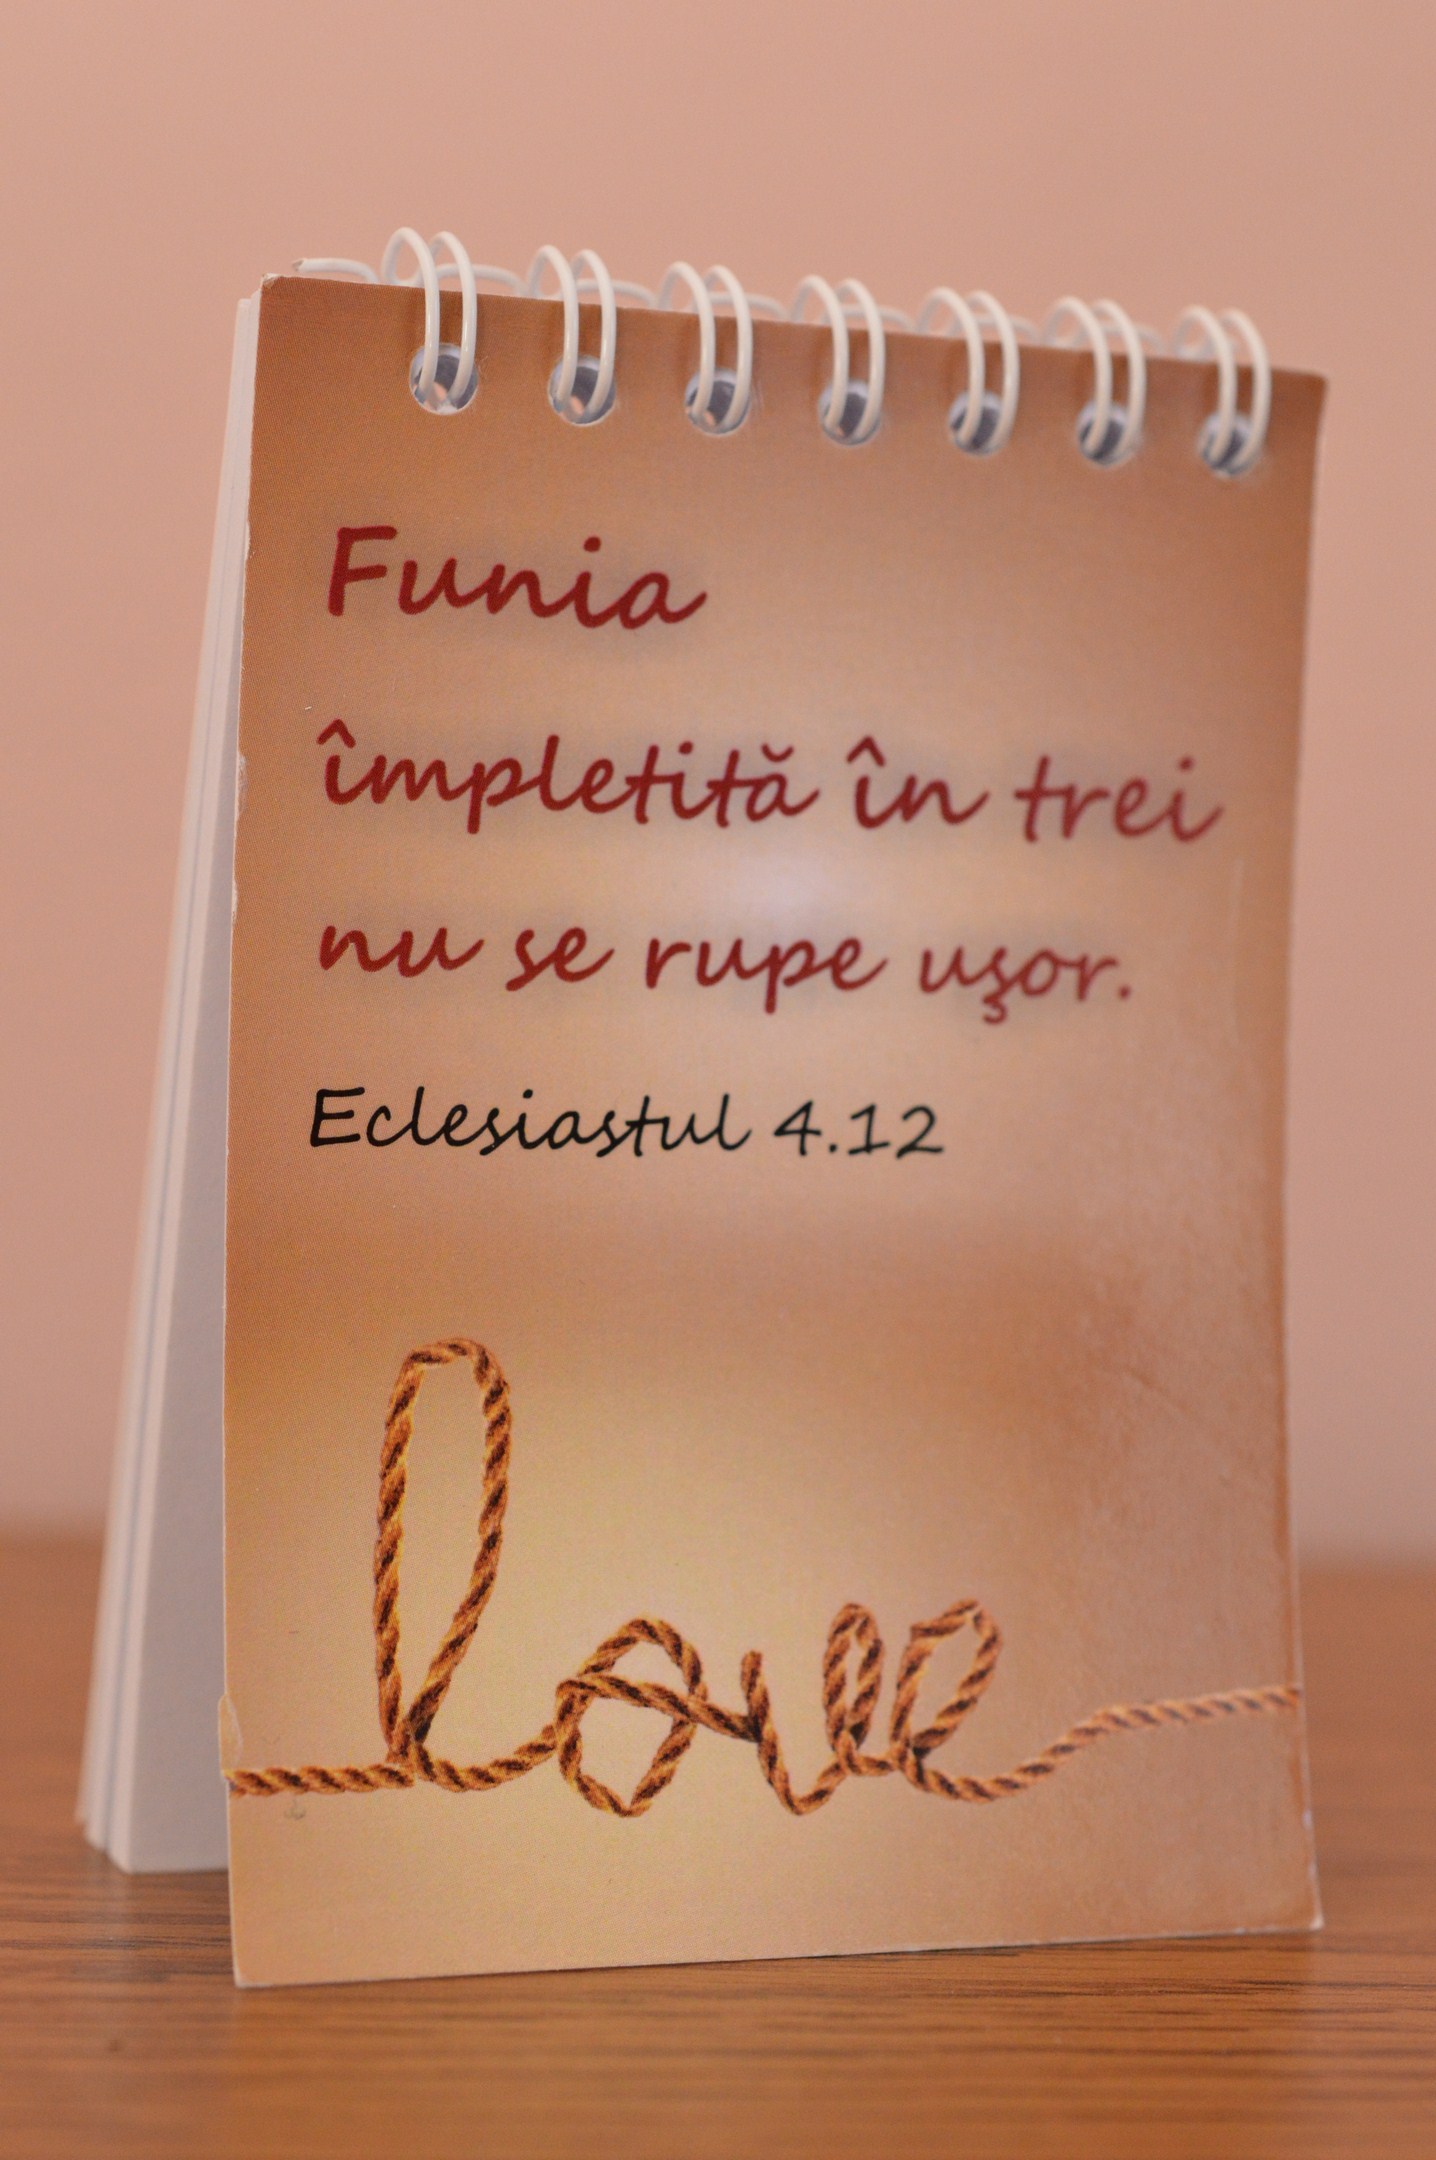 Funia
împletită în trei
nu se rupe uşor.
Eclesiastul 4.12
love